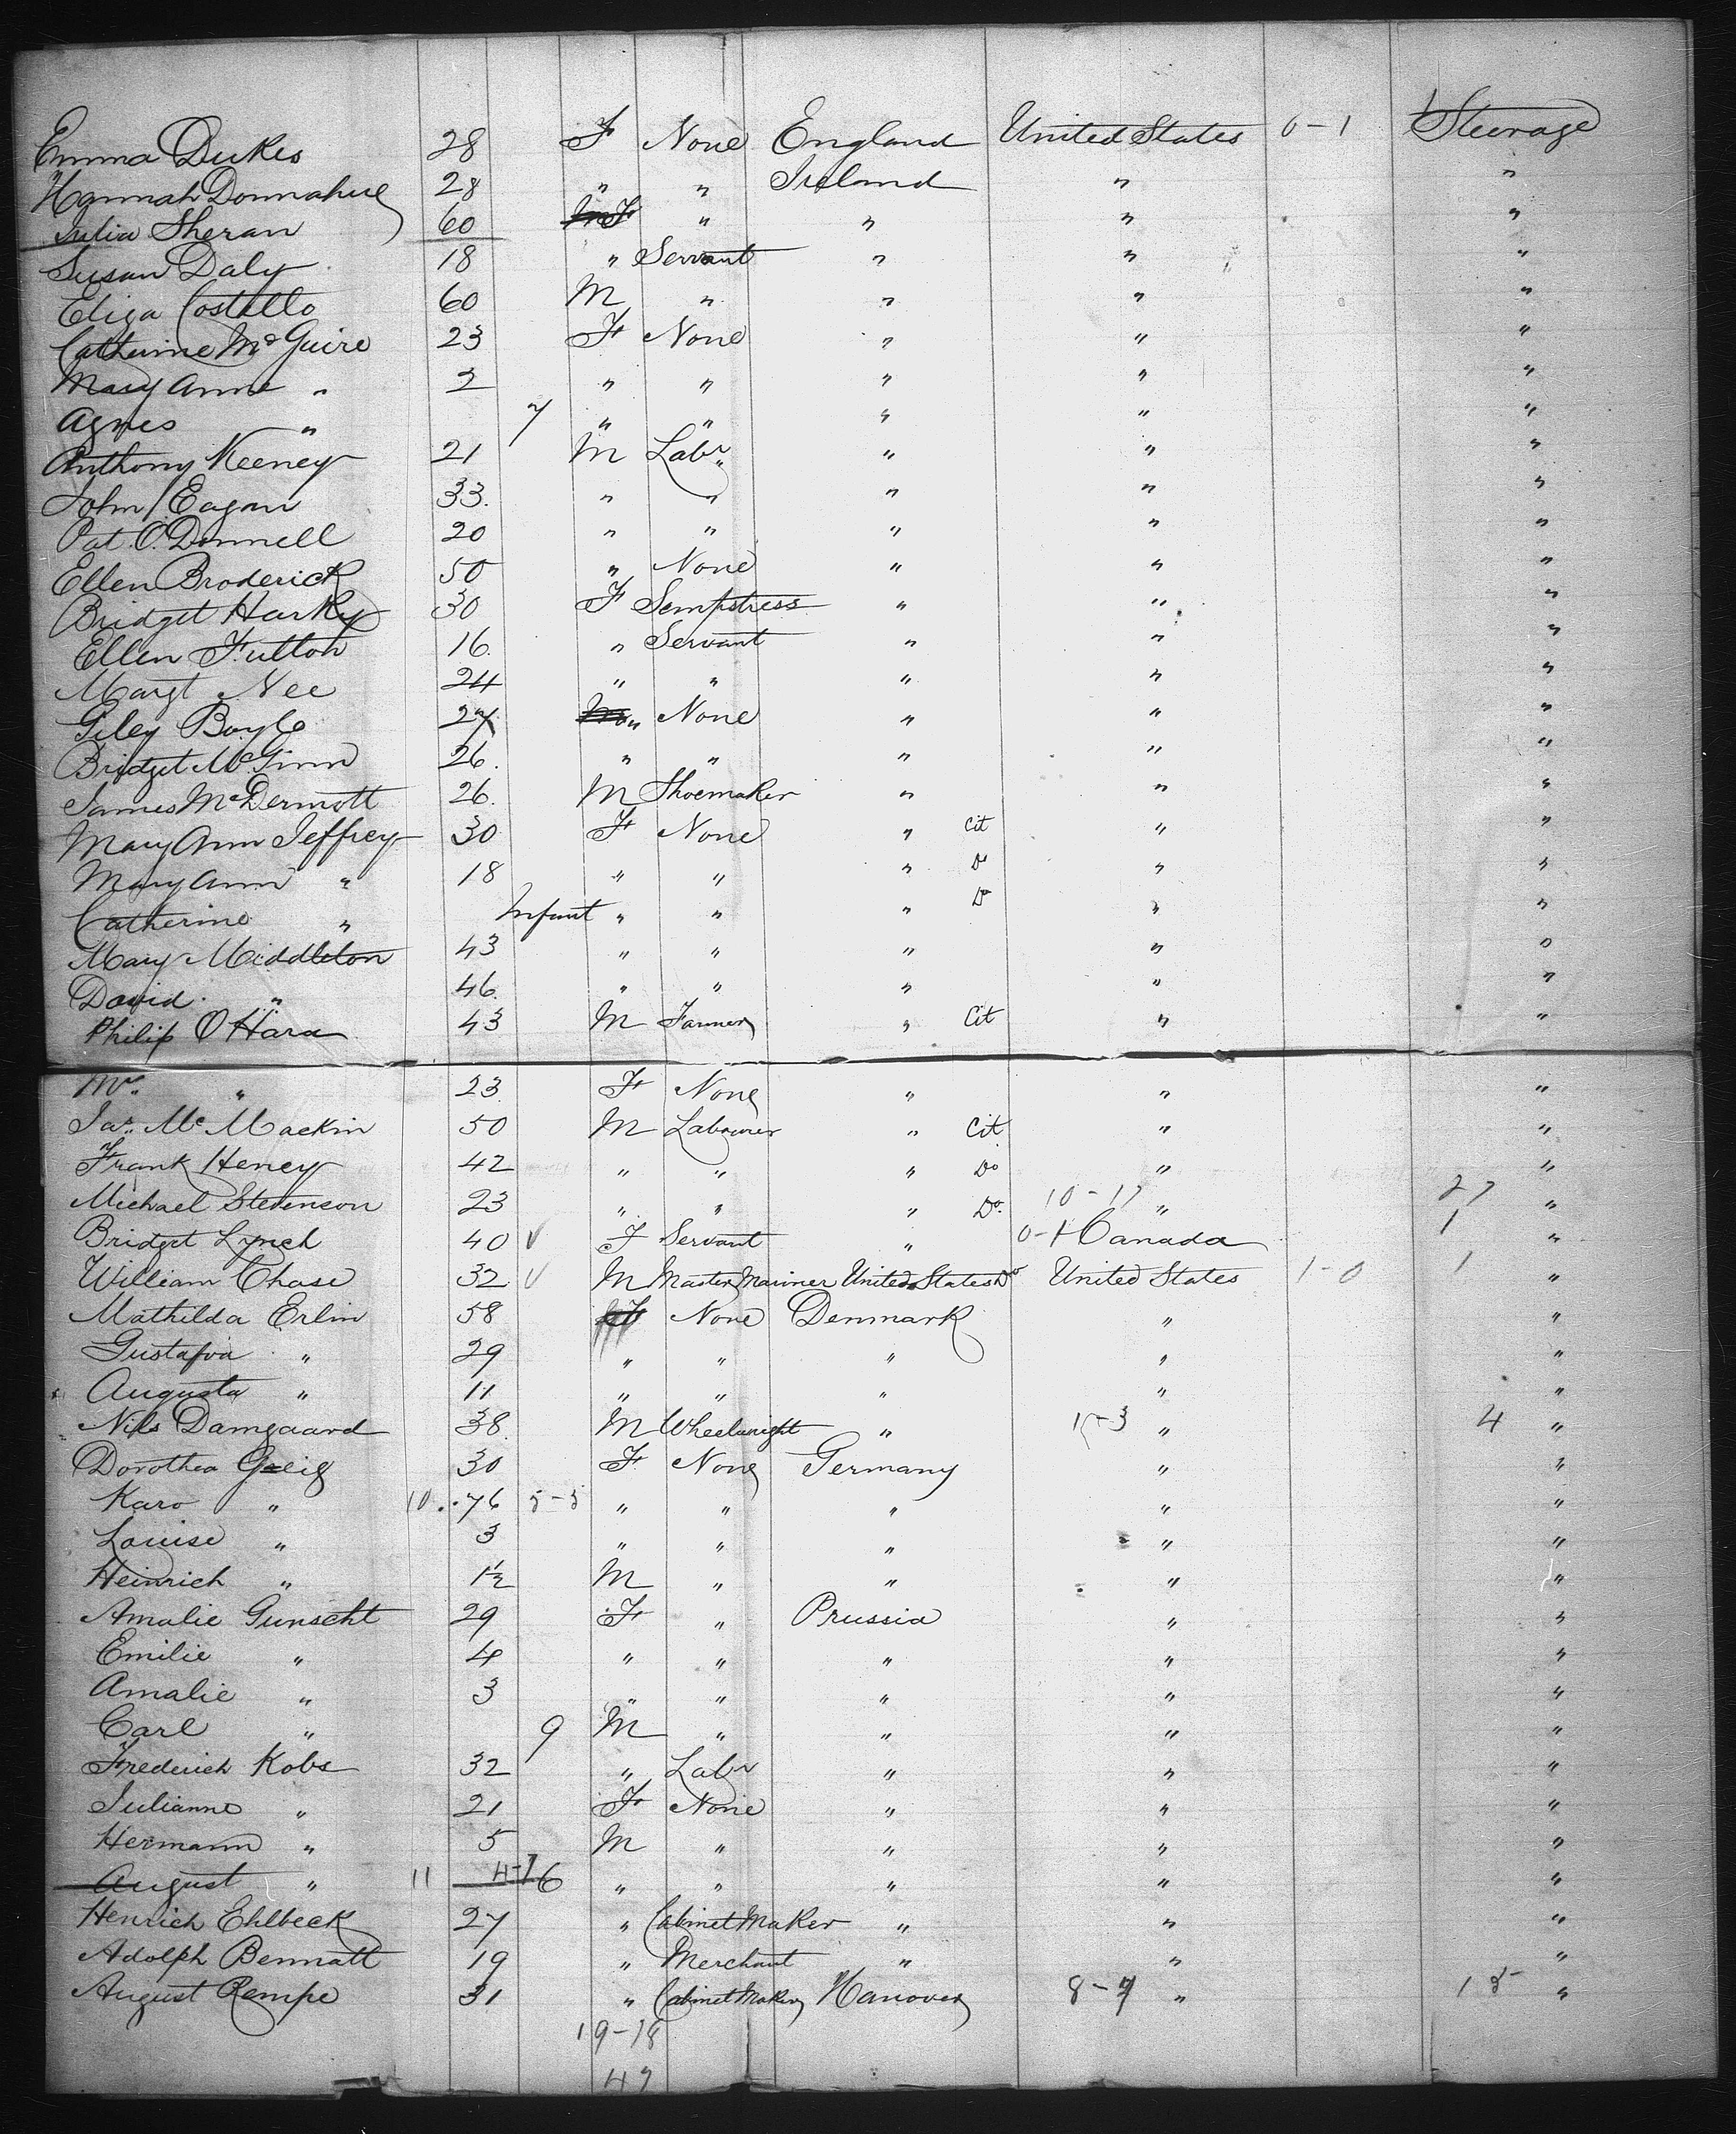 Emma Dukes 28 F None England United States 0-1 Steerage
Hannah Donnahue 28 " " Ireland " "
Julia Sheran 60 F " " " "
Susan Daly 18 " Servant " " "
Eliza Costello 60 M " " " "
Catherine McGuire 23 F None " " "
Mary Anne " 2 " " " " "
Agnes " 7 " " " " "
Anthony Keeney 21 M Labr " " "
John Eagan 33. " " " " "
Pat. O.Donnell 20 " " " " "
Ellen Broderick 50 " None " " "
Bridget Harky 30 F Sempstress " " "
Ellen Fulton 16. " Servant " " "
Margt Nee 24 " " " " "
Giley Boyle 27 " None " " "
Bridget McGinn 26. " " " " "
James McDermott 26. M Shoemaker " " "
Mary Ann Jeffrey 30 F None " Cit " "
Mary Ann " 18 " " " Do " "
Catherine " Infant " " " Do " "
Mary Middleton 43 " " " " "
David. " 46. " " " " "
Philip O'Hara 43 M Farmer " Cit " "
Mrs. " 23 F None " " "
Jas. McMackin 50 M Labourer " Cit " "
Frank Heney 42 " " " Do " "
Michael Stevenson 23 " " " Do. 10-17 " 27 "
Bridget Lynch 40 V F Servant " 0-1 Canada 1 "
William Chase 32 V M Master Mariner United States Do United States 1-0 1 "
Mathilda Erlin 58 F None Denmark " "
Gustafva " 29 " " " " "
Augusta " 11 " " " " "
Nils Damgaard 38. M Wheelwright " 1-3 " 4 "
Dorothea Greig 30 F None Germany " "
Karo " 10. 76 5-5 " " " " "
Louise " 3 " " " " "
Heinrich " 1½ M " " " "
Amalie Gunscht 29 F " Prussia " "
Emilie " 4 " " " " "
Amalie " 3 " " " " "
Carl " 9 M " " " "
Frederich Kobs 32 " Labr " " "
Julianne " 21 F None " " "
Hermann " 5 M " " " "
August " 11 4-7 6 " " " " "
Henrich Ehlbeck 27 " Cabinet Maker " " "
Adolph Bennatt 19 " Merchant " " "
August Rempe 31 " Cabinet Maker Hanover 8-7 " 15 "
19-18
47